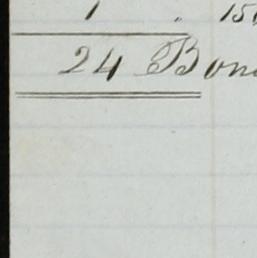 1 . 15
24 Bon